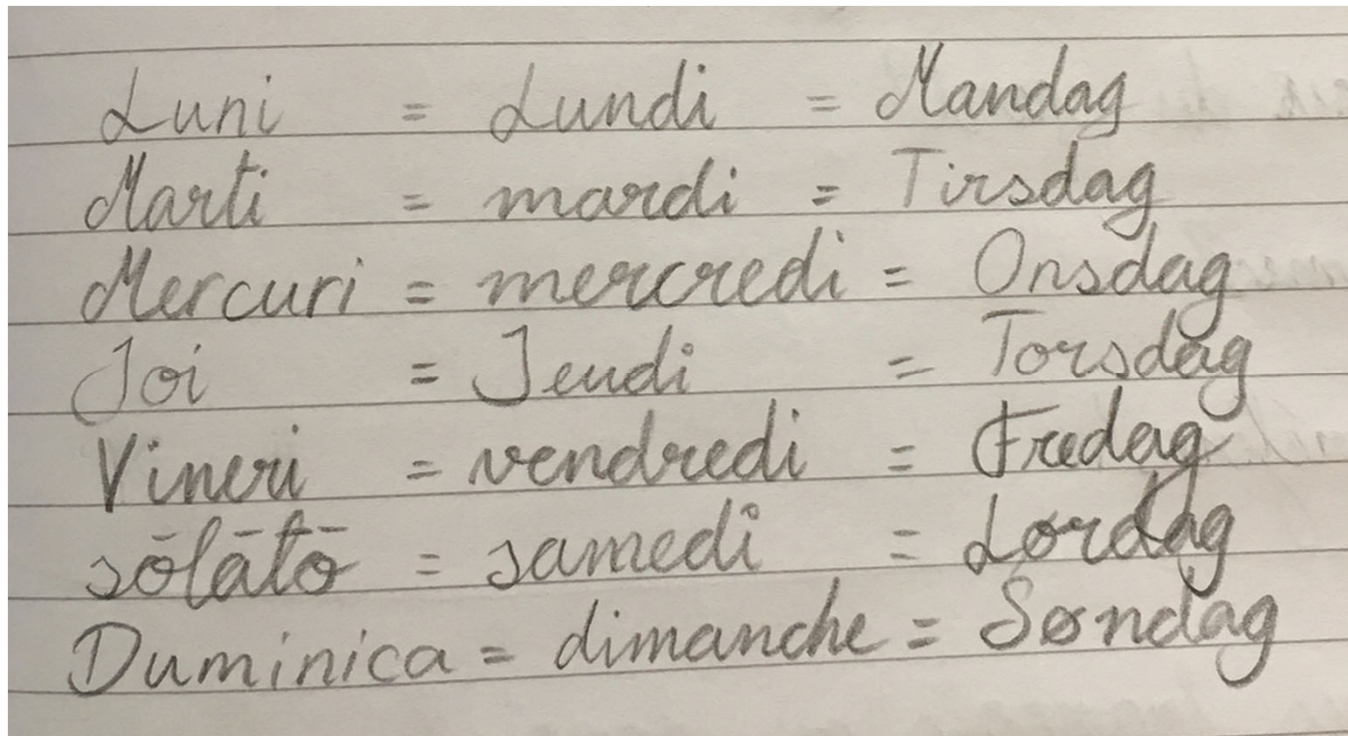 Luni = Lundi = Mandag
Marti = mardi = Tirsdag
Mercuri = mercredi = Onsdag
Joi = Jeudi = Torsdag
Vineri = vendredi = Fredag
sōlātō = samedi = Lordag
Duminica = dimanche = Søndag